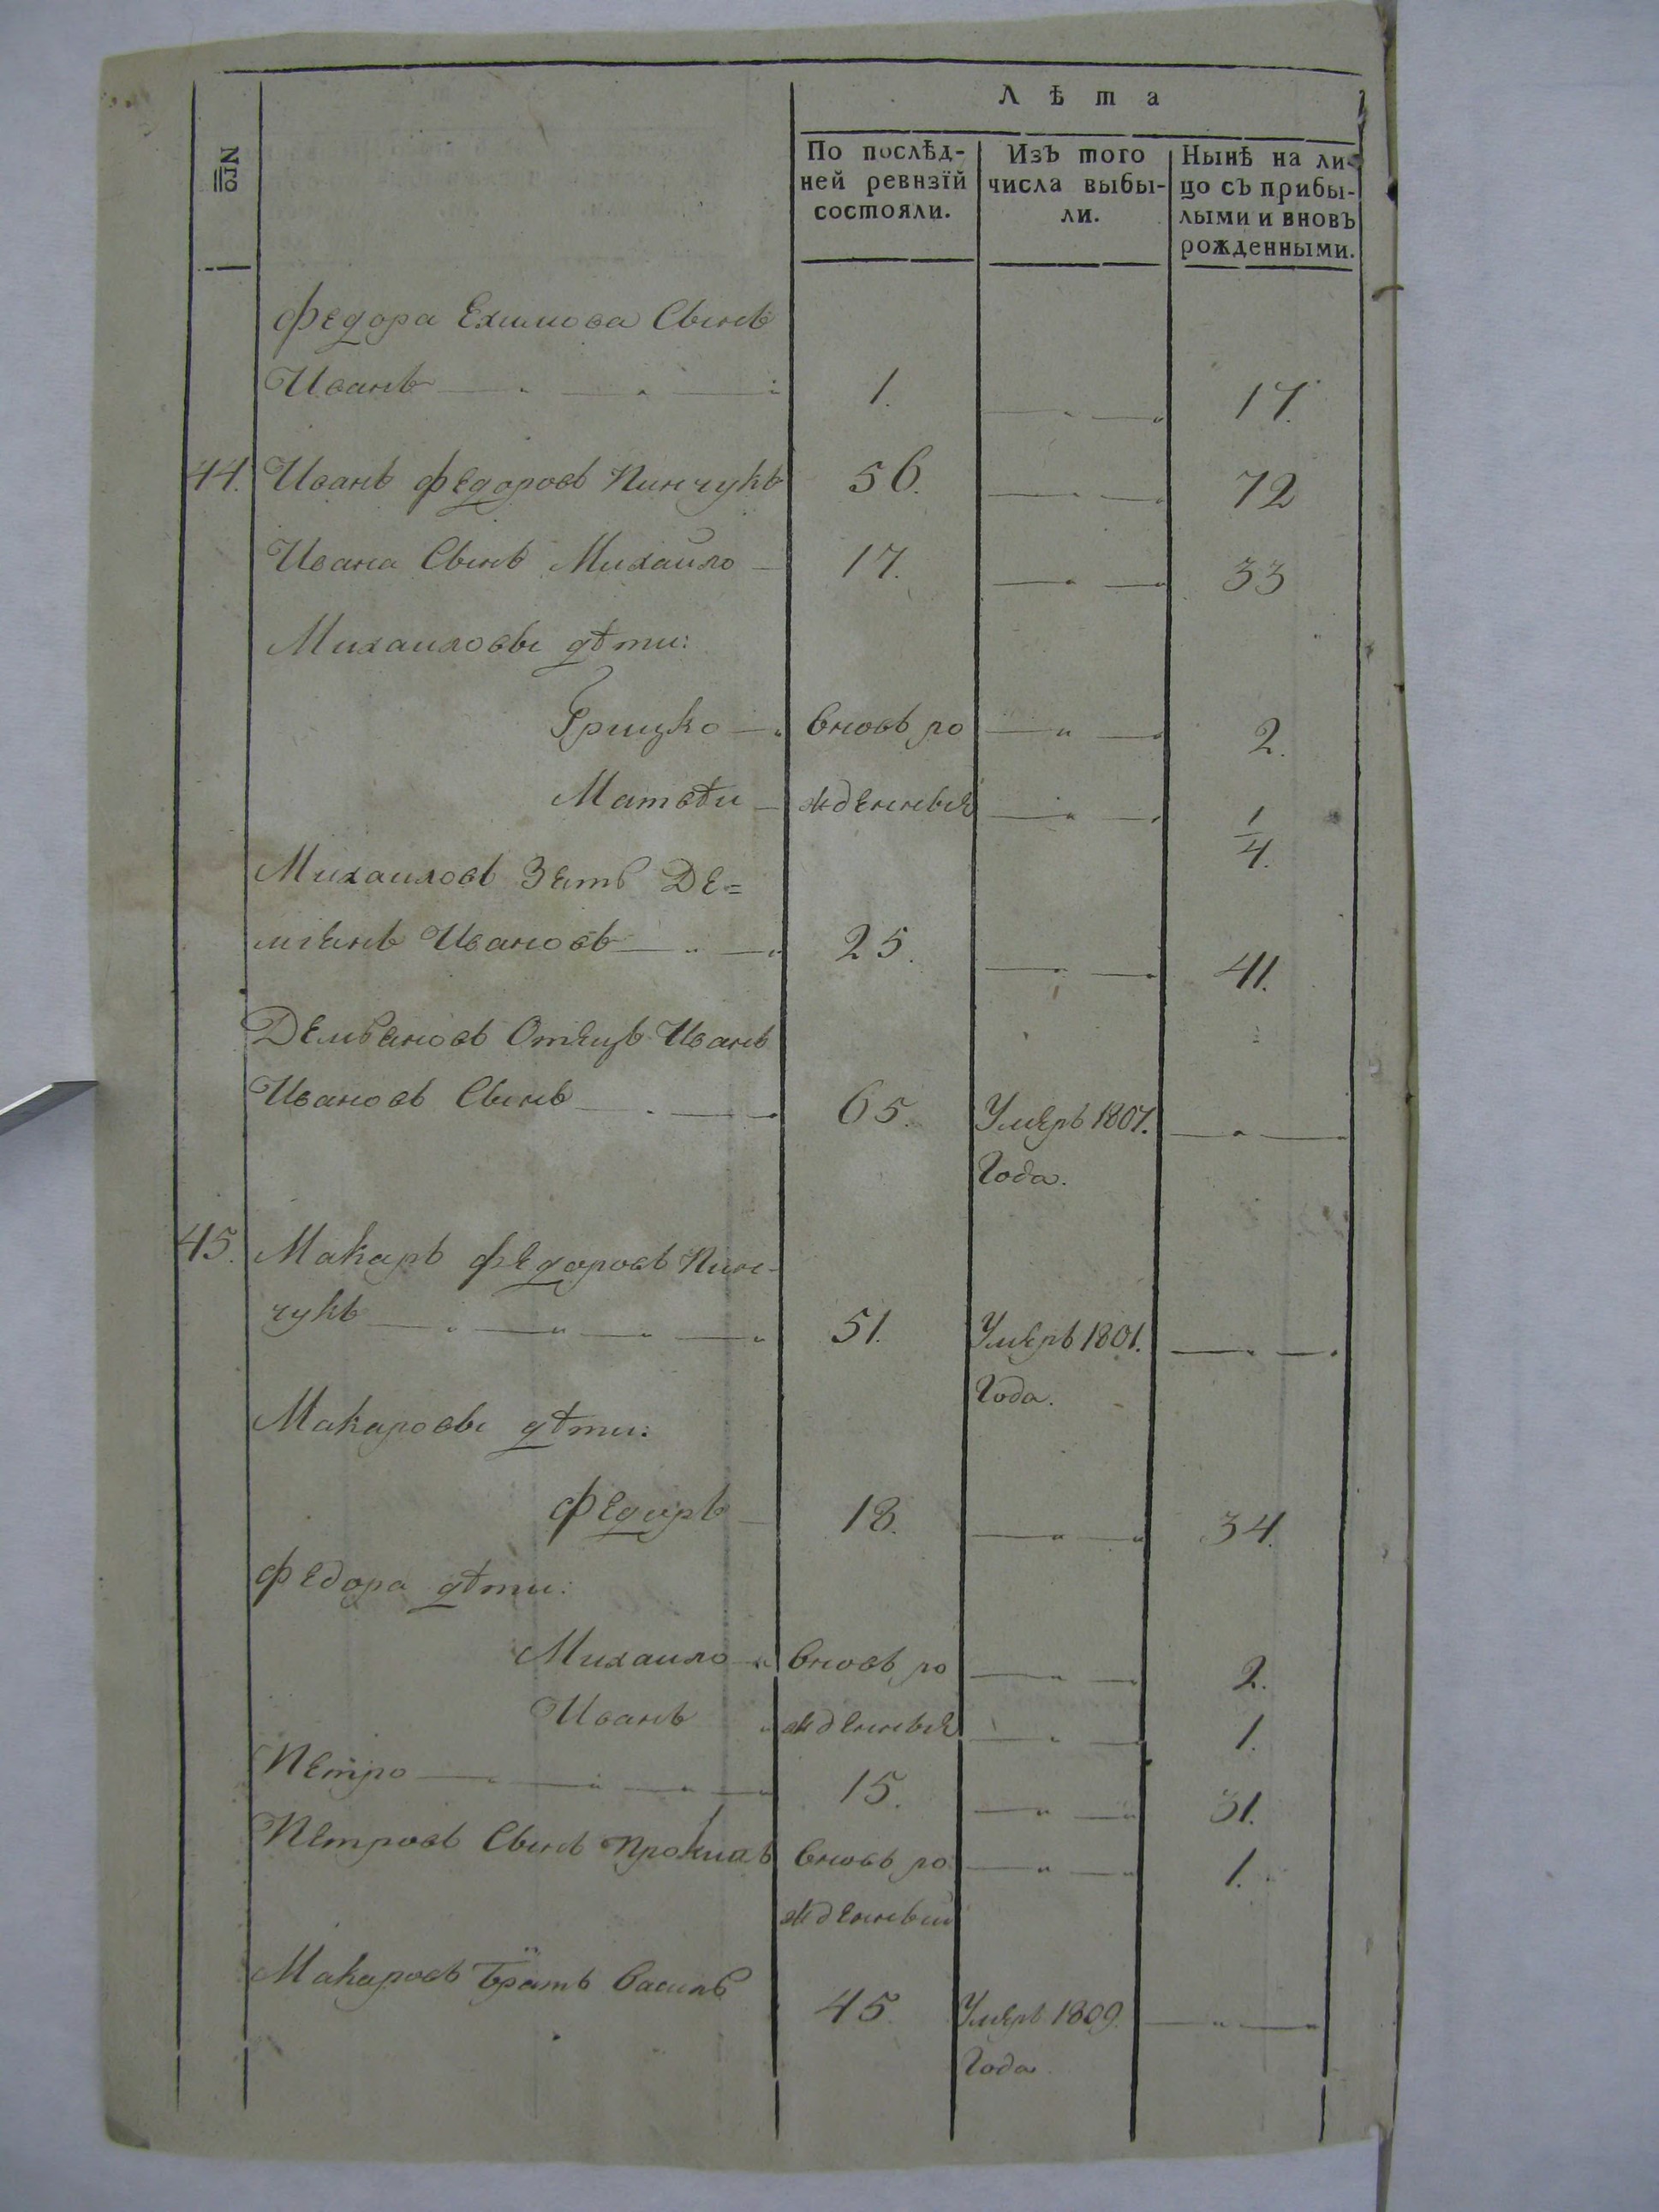 Лѣта
Nго
По послѣд-
ней ревизїй
состояли.
Изъ того
числа выбы-
ли.
Нынѣ на ли-
цо съ прибы-
лыми и вновь
рожденными.
Федора Ехимова Сынъ
Иванъ 1. 17.
44. Иванъ Федоровъ Пинчукъ 56. 72
Ивана Сынъ Михайло 17. 33
Михаиловы дѣти:
Грицко вновь ро 2.
Матвѣи жденныя 1/4.
Михаиловъ Зять Де=
мянъ Ивановъ 25. 41.
Демьяновъ Отецъ Иванъ
Ивановъ Сынъ 65. Умеръ 1807.
Года.
45. Макаръ Федоровъ Пин-
чукъ 51. Умеръ 1801.
Года.
Макаровы дѣти:
Федиръ 18. 34.
Федора дѣти:
Михаило вновь ро 2.
Иванъ жденныя 1.
Петро 15. 31.
Петровъ Сынъ вновь ро 1.
жденный
Макаровъ Братъ Василь 45. Умеръ 1809.
Года